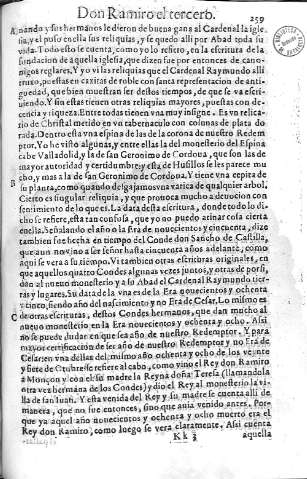 Don Ramiro el tercero. 259
A nando y sus hermanos le dieron de buena gana al Cardenal la igle
sia, y el puso en ella sus reliquias, y se quedo alli por Abad toda su
vida. Todo esto se cuenta, como yo lo refiero, en la escritura de la
fundacion de aquella iglesia, que dizen fue por entonces de cano-
nigos reglares. Y yo vi las reliquias que el Cardenal Raymundo alli
truxo, puestas en caxitas de roble con harta representacion de anti-
guedad, que bien muestran ser destos tiempos, de que se va escri-
uiendo. Y sin estas tienen otras reliquias mayores, puestas con de-
cencia y riqueza. Entre todas tienen vna muy insigne. Es vn relica-
rio de Christal metido en vn tabernaculo con colunas de plata do-
rada. Dentro esta vna espina de las de la corona de nuestro Redem
ptor. Yo he visto algunas, y entre ellas la del monesterio del Espina
cabe Valladolid, y la de san Geronimo de Cordoua, que son las de
mayor autoridad y certidumbre, y esta de Husillos se les parece mu
cho, y mas a la de san Geronimo de Cordoua. Y tiene vna cepita de
B su planta, como quando desgajamos vna varica de qualquier arbol,
Cierto es singular reliquia, y que prouoca mucho a deuocion con
sentimiento de lo que es. La data desta escritura, donde todo lo di-
cho se refiere, esta tan confusa, que yo no puedo atinar cosa cierta
en ella. Señalando el año la Era de nouecientos y cincuenta, dize
tambien fue hecha en tiempo del Conde don Sancho de Castilla,
que aun no vino a ser señor hasta cincuenta años adelante, como
aqui se vera a su tiempo. Vi tambien otras escrituras originales, en
que aquellos quatro Condes algunas vezes juntos, y otras de por si,
dan al nueuo monesterio y a su Abad el Cardenal Raymundo tier-
ras y lugares. Su data de la vna es de la Era nouecientos y ochenta
y cinco, siendo año del nascimiento y no Era de Cesar. Lo mismo es
C de otras escrituras, destos Condes hermanos, que dan mucho al
nueuo monesterio en la Era nouecientos y ochenta y ocho. Assi
no se puede dudar en que sea año de nuestro Redemptor. Y para
mayor certificacion de ser año de nuestro Redemptor y no Era de
Cesar en vna dellas del mismo año ochenta y ocho de los veynte
y siete de Otubre se refiere al cabo, como vino el Rey don Ramiro
a Monçon y con el su madre la Reyna doña Teresa (llamandola
otra vez hermana de los Condes) y dio el Rey al monesterio la vi-
lla de san Iuan. Y esta venida del Rey y su madre se cuenta alli de
manera, que no fue entonces, sino que auia venido antes. Por-
que ya aquel año nouecientos y ochenta y ocho muerto era el
Rey don Ramiro, como luego se vera claramente. Assi cuenta
Kk 3 aquella